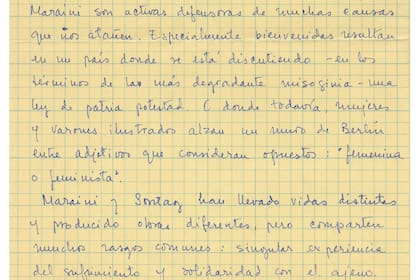 Maraini son activas defensoras de muchas causas
que nos atañen. Especialmente bienvenidas resultan
en un país donde se está discutiendo -en los
términos de la más degradante misoginia- una
ley de patria potestad. O donde todavía, mujeres
y varones ilustrados alzan un muro de Berlín
entre adjetivos que consideran opuestos: "femenina
o feminista".
Maraini y Sontag han llevado vidas distintas
y producido obras diferentes, pero comparten
muchos rasgos comunes: singular experiencia
del sufrimiento y solidaridad con el ajeno